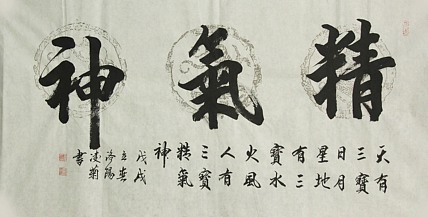 精氣神
天有
三寶
日月
星地
有三
寶水
火風
人有
三寶
精氣
神
戊戌
立春
洛陽
書